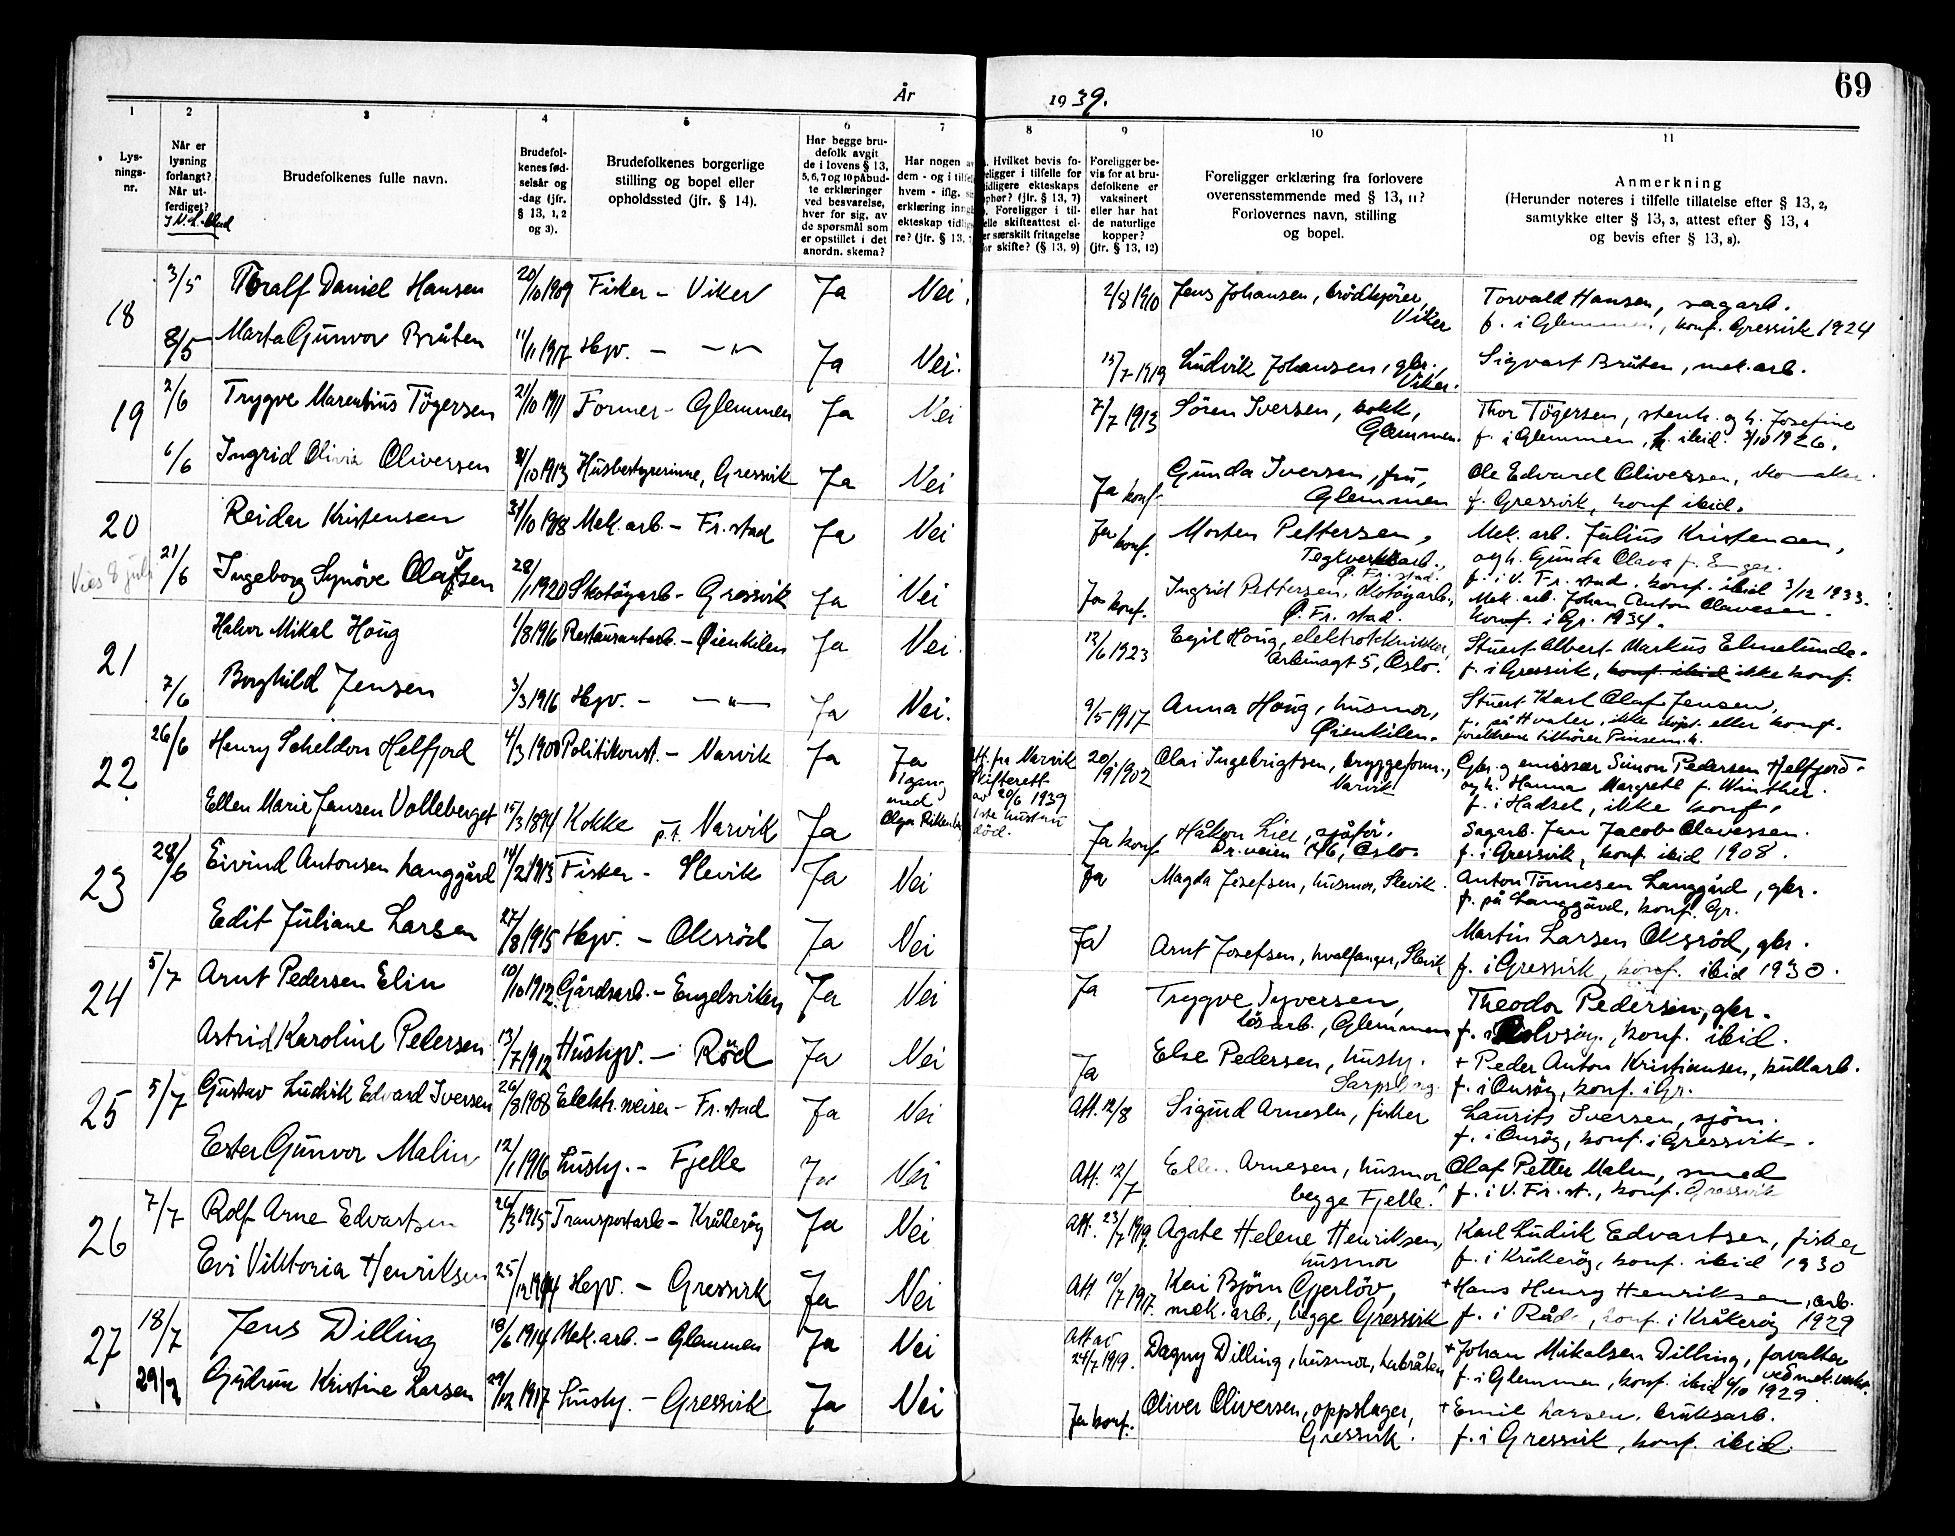 69
År 1939.
1 2 3 4 5 6 7 8 9 10 11
Lys-
nings-
nr.
Når er
lysning
forlangt?
Når ut-
ferdiget?
Brudefolkenes fulle navn.
Brudefol-
kenes fød-
selsår og
-dag (jfr.
§ 13, 1, 2
og 3).
Brudefolkenes borgerlige
stilling og bopel eller
opholdssted (jfr. § 14).
Har begge bru-
defolk avgit
de i lovens § 13,
5, 6, 7 og 10 påbud-
te erklæringer
ved besvarelse,
hver for sig, av
de spørsmål som
er opstillet i det
anordn. skema?
Har nogen av
dem - og i tilfel
hvem - iflg.
erklæring inng
ekteskap tidlig
re? (jfr. § 13,
Hvilket bevis fo-
religger i tilfelle for
tidligere ekteskaps
ophør? (jfr. § 13, 7)
Foreligger i til-
felle skifteattest el-
er særskilt fritagelse
for skifte? (§ 13, 9)
Foreligger be-
vis for at bru-
defolkene er
vaksinert
eller har hat
de naturlige
kopper?
(jfr. § 13, 12)
Foreligger erklæring fra forlovere
overensstemmende med § 13, 11?
Forlovernes navn, stilling
og bopel.
Anmerkning
(Herunder noteres i tilfelle tillatelse efter § 13, 2,
samtykke efter § 13, 3, attest efter § 13, 4
og bevis efter § 13, 8).
18 3/5 Toralf Daniel Hansen 20/10 1909 Fisker - Viker Ja Nei. 2/8 1910 Jens Johansen, brödkjörer, Viker Torvald Hansen, sagarb.
f. i Glemmen, konf. Gressvik 1924
8/5 Marta Gunvor Bråten 11/11 1917 Hjv. - -"- Ja Nei. 15/7 1919 Ludvik Johansen, gbr., Viker. Sigvart Bråten, mek. arb.
19 2/6 Trygve Marentius Tögersen 21/10 1911 Former - Glemmen Ja Nei 7/7 1913 Sören Iversen, kokk, Glemmen. Thor Tögersen, stenh. og h. Josefine
f. i Glemmen, k. ibid. 3/10 1926.
6/6 Ingrid Olivia Oliversen /10 1913 Husbestyrerinne, Gressvik Ja Nei Ja konf. Gunda Iversen, fru, Glemmen Ole Edvard Oliversen,
f. Gressvik, konf ibid.
20 Reidar Kristensen 31/10 1908 Mek. arb. - Fr.stad Ja Nei Ja konf. Morten Pettersen, Teglverksarb., Ö. Fr. stad. Mek. arb. Julius Kristensen,
og h. Gunda Olava f. Enger.
f. i V. Fr. stad. konf. ibid 3/12 1933.
Vies 8 juli 21/6 Ingeborg Synöve Olavsen 28/1 1920 Skotöyarb - Gressvik Ja Nei Ja konf. Ingrid Pettersen, skotöyarb., Ö. Fr. stad. Mek. arb. Johan Anton Olavesen.
Konf. i Gr. 1934.
21 Halvor Mikal Houg 1/8 1916 Restaurantarb. - Öienkilen Ja Nei. 12/6 1923 Egil Houg, elektrotekniker, 5, Oslo. Stuert Albert Markus Elmelunde.
f. i Gressvik, konf ibid ikke konf.
7/6 Borghild Jensen 3/3 1916 Hjv. - -"- Ja Nei. 9/5 1917 Anna Houg, husmor, Öienkilen. Stuert Karl Olaf Jensen,
f. på Hvaler, ikke döpt eller konf.
foreldrene tilhörer Pinsem.h.
22 26/6 Henry Scheldon Helfjord 4/3 1900 Politikonst. - Narvik Ja Ja
1 gang
med
Olga
Att. fra Narvik
Skifterett
av 20/6 1939
1ste hustru
död.
20/9 1902 Olai Ingebrigtsen, bryggeform., Narvik Gbr. og emissær Simon Pedersen Helfjord
og h. Hanna Margrethe f. Winther.
f. i Hadsel, ikke konf.
Ellen Marie Jensen Volleberget 15/3 1894 Kokke p.t. Narvik Ja Ja konf Håkon Lier, sjåför.
Dr.veien 46, Oslo. Sagarb. Jan Jacob Olavessen.
f. i Gressvik, konf. ibid 1908.
23 28/6 Eivind Antonsen Langgård 14/2 1913 Fisker - Slevik Ja Nei Ja Magda Josefsen, husmor, Slevik. Anton Tönnesen Langgård, gbr.
f. på Langgård, konf. Gr.
Edit Juliane Larsen 27/8 1915 Hjv. - Oksröd Ja Nei Ja Arnt Josefsen, hvalfanger, Slevik Martin Larsen Oksröd, gbr.
f. i Gressvik, konf. ibid 1930.
24 5/7 Arnt Pedersen Elin 10/10 1912 Gårdsarb. - Engelsviken Ja Nei Ja Trygve Syversen,
lösarb., Glemmen Theodor Pedersen, gbr.
f. i Rolvsöy, konf. ibid.
Astrid Karoline Pedersen 13/7 1912 Hushjv. - Röd Ja Nei Ja Else Pedersen, hushj.
Sarpsborg + Peder Anton Kristiansen, hullarb.
f. i Onsöy, konf. i Gr.
25 5/7 Gustav Ludvik Edvard Iversen 26/8 1908 Elektr. - Fr.stad Ja Nei Att. 12/8 Sigurd Arnesen, fisker Laurits Iversen, sjöm.
f. i Onsöy, konf. i Gressvik.
Ester Gunvor Malin 12/1 1916 Hushj. - Fjelle Ja Nei Att. 12/7 Ellen Arnesen, husmor
begge Fjelle. Olaf Petter Malm, smed
f. i V. Fr. st., konf. Gressvik
26 7/7 Rolf Arne Edvartsen 26/3 1915 Transportarb - Kråkeröy Ja Nei Att. 23/7 1919. Agate Helene Henriksen,
husmor Karl Ludvik Edvartsen, fisker
f. i Kråkeröy, konf. ibid 1930
Evi Viktoria Henriksen 25/12 1914 Hjv. - Gressvik Ja Nei Att 10/7 1917. Kai Björn Gjerlöv,
mek. arb., begge Gressvik + Hans Henry Henriksen, arb.
f. i Råde, konf. i Kråkeröy 1929
27 18/7 Jens Dilling 18/6 1914 Mek. arb. - Glemmen Ja Nei Att av
24/7 1919. Dagny Dilling, husmor, + Johan Mikalsen Dilling, forvalter
ved mek. verks.
f. i Glemmen, konf. ibid /10 1929.
29/7 Gudrun Kristine Larsen 29/12 1917 Hushj. - Gressvik Ja Nei Ja konf. Oliver Oliversen, oppslager,
Gressvik. + Emil Larsen, bruksarb.
f. i Gressvik, konf. ibid.